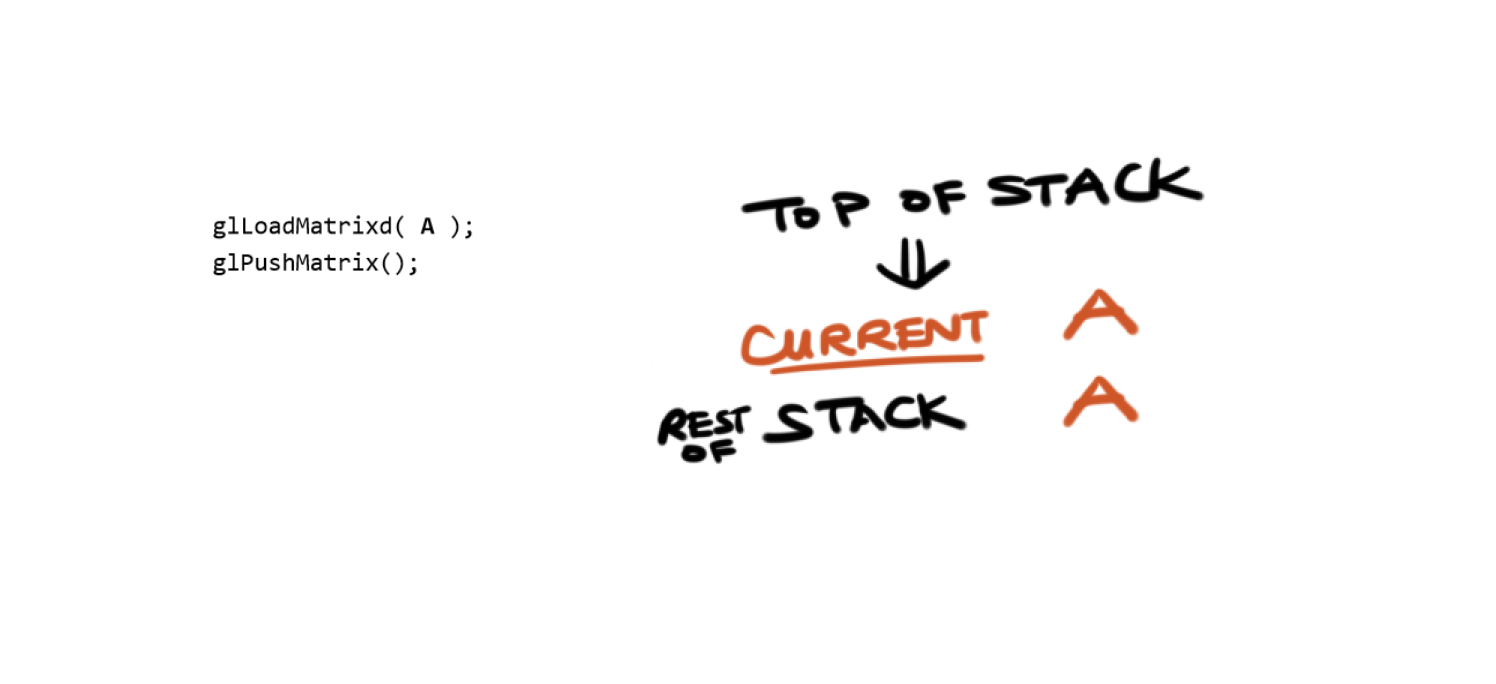 glLoadMatrixd( A );
glPushMatrix();
TOP OF STACK
CURRENT A
REST OF STACK A